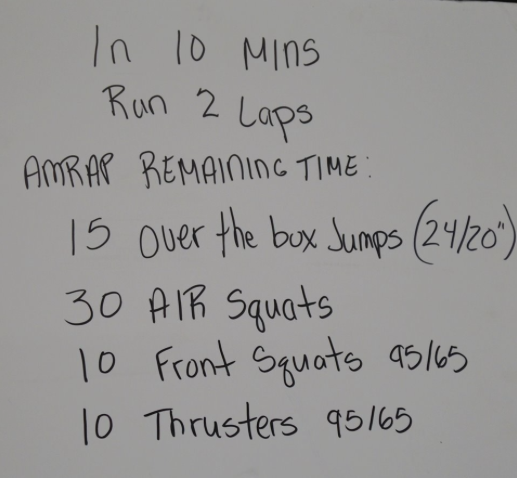 In 10 Mins
Run 2 Laps
AMRAP REMAINING TIME:
15 Over the box Jumps (24/20")
30 AIR Squats
10 Front Squats 95/65
10 Thrusters 95/65